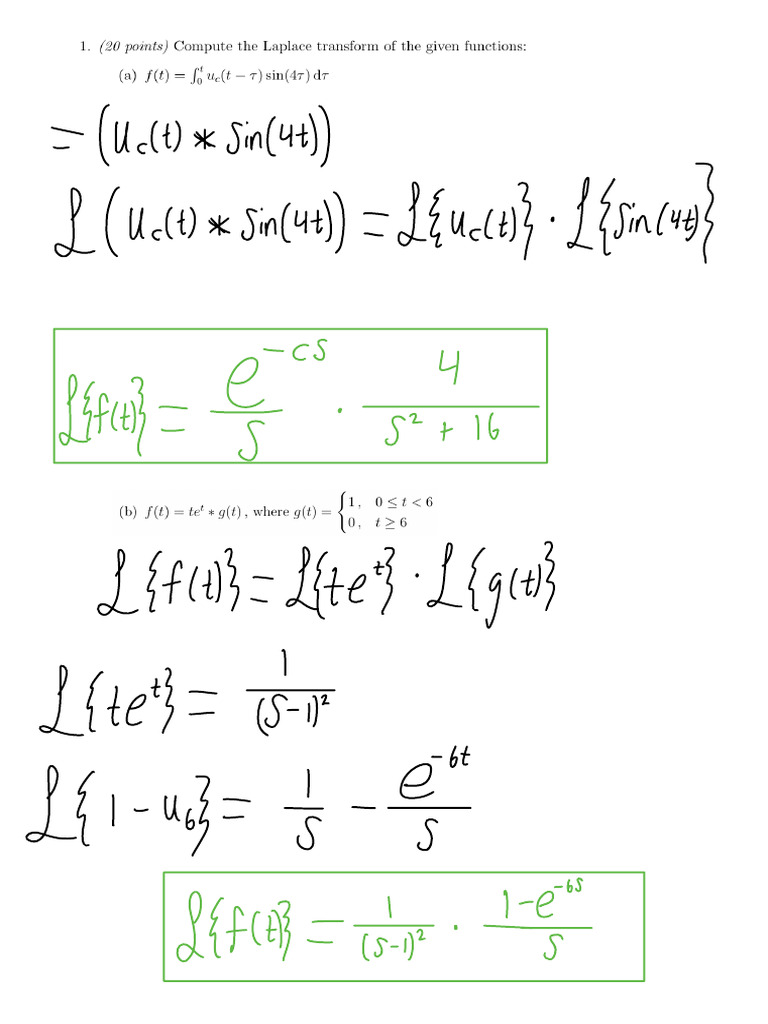 1. (20 points) Compute the Laplace transform of the given functions:
(a) f(t) = ∫₀ᵗ u_c(t − τ) sin(4τ) dτ
= (u_c(t) * sin(4t))
ℒ(u_c(t) * sin(4t)) = ℒ{u_c(t)} · ℒ{sin(4t)}
ℒ{f(t)} = e^{-cs}/s · 4/(s² + 16)
(b) f(t) = te^t * g(t), where g(t) = {1, 0 ≤ t < 6
0, t ≥ 6
ℒ{f(t)} = ℒ{te^t} · ℒ{g(t)}
ℒ{te^t} = 1/(s-1)²
ℒ{1 - u₆} = 1/s - e^{-6t}/s
ℒ{f(t)} = 1/(s-1)² · (1-e^{-6s})/s